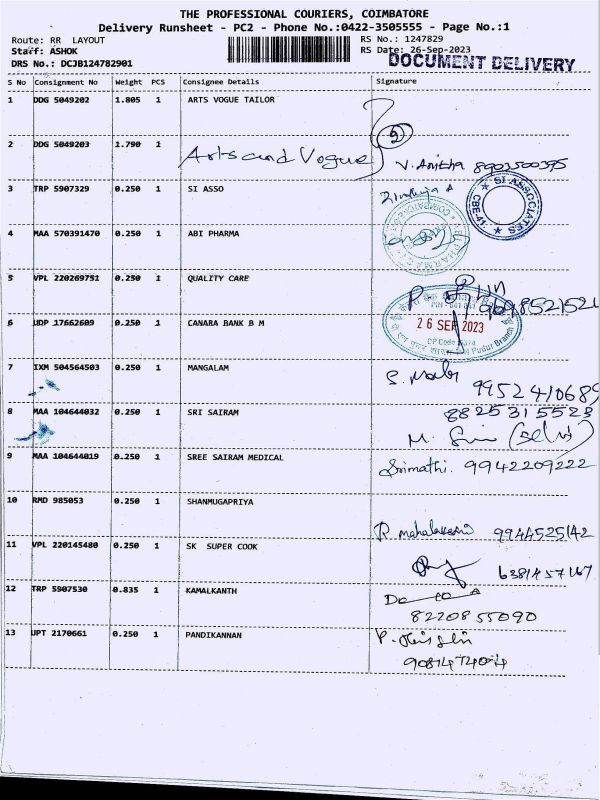 THE PROFESSIONAL COURIERS, COIMBATORE
Delivery Runsheet - PC2 - Phone No.:0422-3505555 - Page No.:1
Route: RR LAYOUT
RS No.: 1247829
Staff: ASHOK
RS Date: 26-Sep-2023
DRS No.: DCJB124782901
DOCUMENT DELIVERY
S No Consignment No Weight PCS Consignee Details Signature
1 DDG 5049202 1.805 1 ARTS VOGUE TAILOR
2 DDG 5049203 1.790 1
Arts and Vogue
2
V. Anitha 8903500395
3 TRP 5907329 0.250 1 SI ASSO
SI ASSOCIATES
CBE-41
4 MAA 570391470 0.250 1 ABI PHARMA
5 VPL 220269751 0.250 1 QUALITY CARE
6 UDP 17662609 0.250 1 CANARA BANK B M
26 SEP 2023
Pudur Branch
7 IXM 504564503 0.250 1 MANGALAM
9952410689
8 MAA 104644032 0.250 1 SRI SAIRAM
8825315523
(Selvi)
9 MAA 104644019 0.250 1 SREE SAIRAM MEDICAL
Srimathi. 9942209222
10 RMD 985053 1 SHANMUGAPRIYA
9944525142
11 VPL 220145480 0.250 1 SK SUPER COOK
6381457167
12 TRP 5907530 0.835 1 KAMALKANTH
8220855090
13 JPT 2170661 0.250 1 PANDIKANNAN